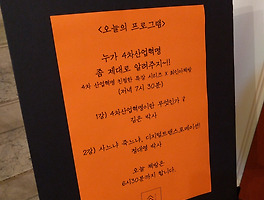 <오늘의 프로그램>
누가 4차산업혁명
좀 제대로 알려주지~!
4차 산업혁명 친절한 특강 시리즈 X 최인아책방
(저녁 7시 30분)
1강) 4차산업혁명이란 무엇인가?
김은 박사
2강) 사느냐 죽느냐, 디지털트랜스포메이션!
정대영 박사
오늘 책방은
6시30분까지 합니다.